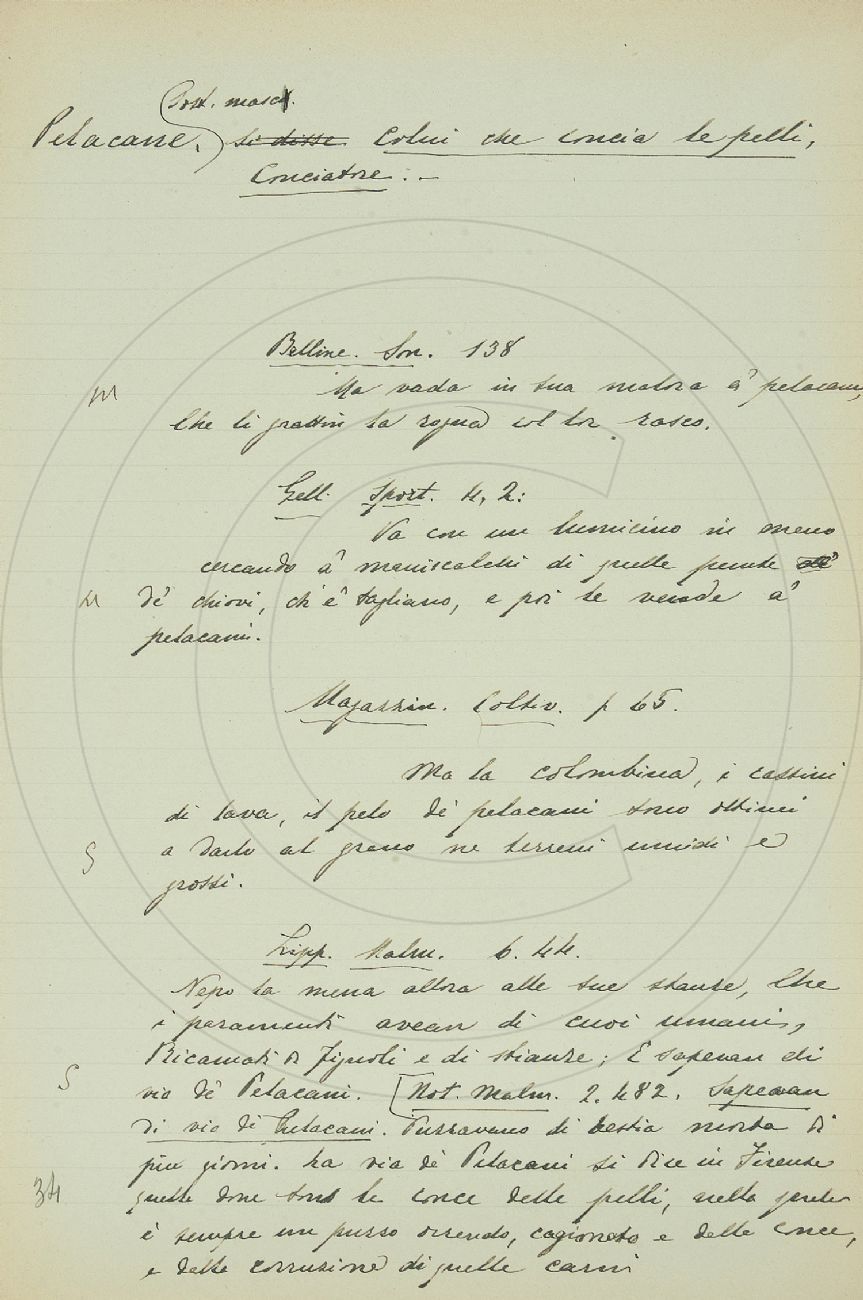 Sost. masc.
Pelacane. si disse Colui che concia le pelli,
Conciatore. –
Bellinc. Son. 138
M
Ma vada in sua malora a' pelacani,
Che li grattin la rogna col lor rasco.
Gell. Sport. 4, 2:
Va con un lumicino in mano
cercando a' maniscalchi di quelle punte
M
de' chiovi, ch'e' tagliano, e poi le vende a'
pelacani.
Magazzin. Coltiv. p 65.
Ma la colombina, i
di lava, il pelo de' pelacani sono ottimi
S
a darlo al grano ne terreni umidi e
grossi.
Lipp. Malm. 6. 44.
Nepo la mena allora alle sue stanze, Che
i paramenti avean di cuoi umani,
Ricamati di fignoli e di stianze; E sapevan di
S
via de' Pelacani. [Not. Malm. 2. 482. Sapevan
di via di Pelacani. Puzzavano di bestia morta di
più giorni. La via de' Pelacani si dice in Firenze
34
quella dove sono le conce delle pelli, nella quale
è sempre un puzzo orrendo, cagionato e dalle conce,
e dalla corruzione di quelle carni